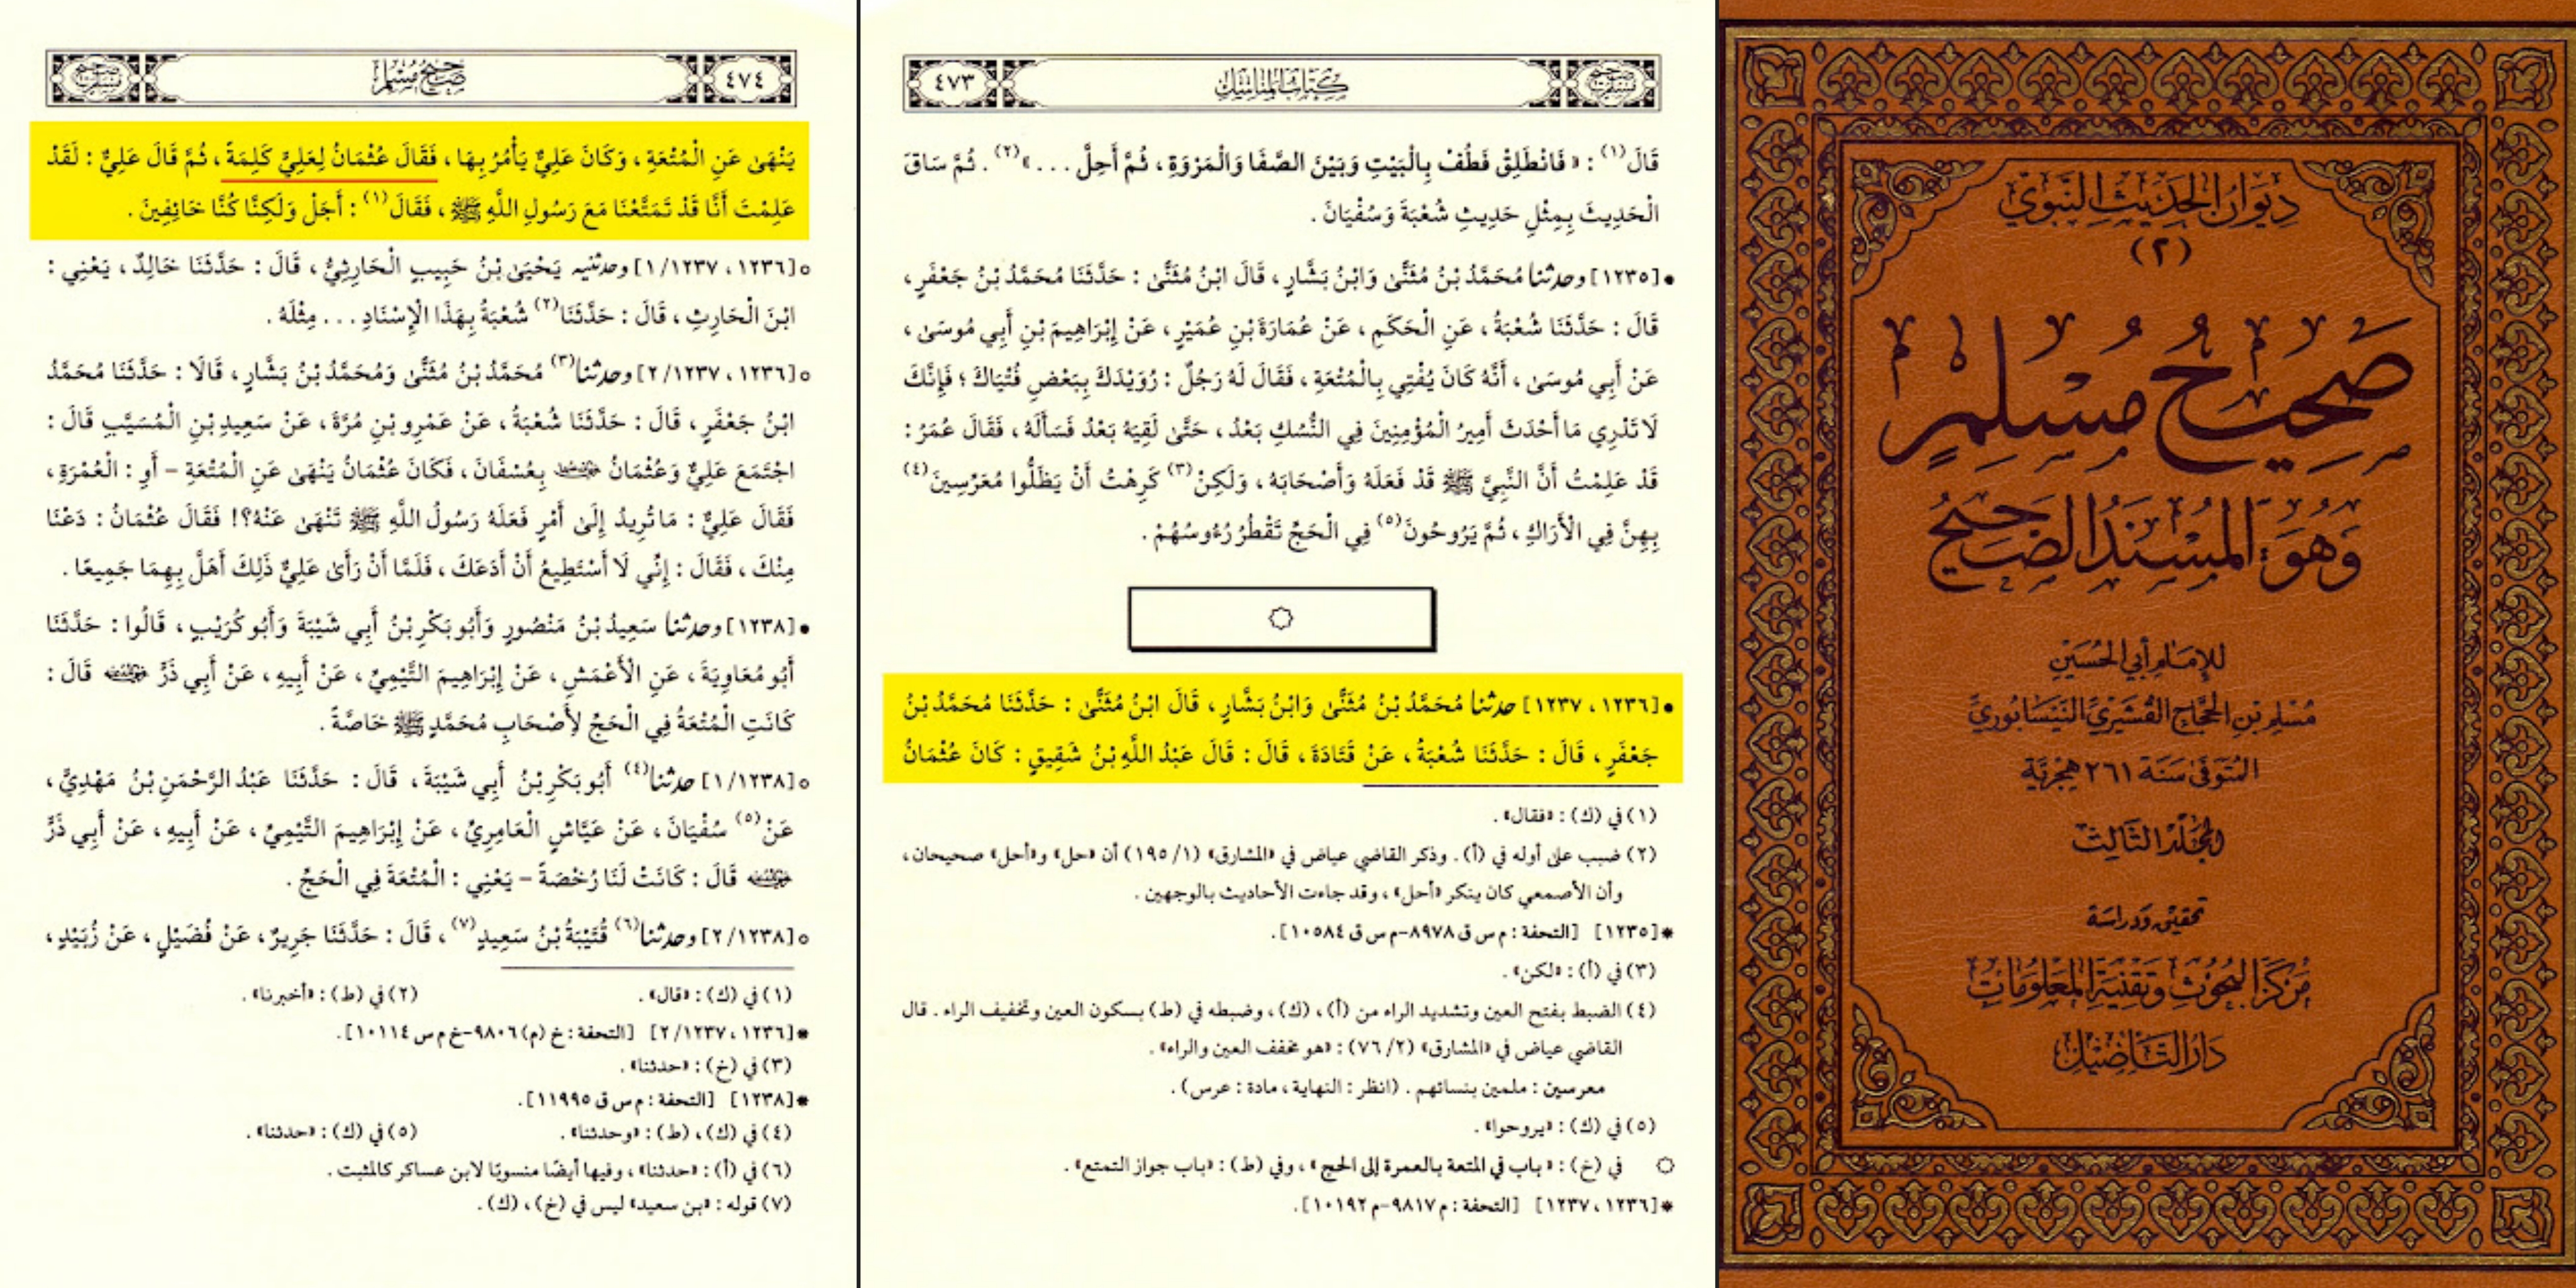 ديوان الحديث النبوي
(٢)
صحيح مسلم
وهو: المسند الصحيح
للإمام أبي الحسين
مسلم بن الحجاج القشيري النيسابوري
المتوفى سنة ٢٦١ هجرية
المجلد الثالث
تحقيق ودراسة
مركز البحوث وتقنية المعلومات
دار التأصيل
كتاب المناسك
٤٧٣
قَالَ(١) : « فَانْطَلِقْ فَطُفْ بِالْبَيْتِ وَبَيْنَ الصَّفَا وَالْمَرْوَةِ ، ثُمَّ أَحِلَّ ... »(٢) . ثُمَّ سَاقَ
الْحَدِيثَ بِمِثْلِ حَدِيثِ شُعْبَةَ وَسُفْيَانَ .
•[١٢٣٥] وحدثنا مُحَمَّدُ بْنُ مُثَنَّى وَابْنُ بَشَّارٍ ، قَالَ ابْنُ مُثَنَّى : حَدَّثَنَا مُحَمَّدُ بْنُ جَعْفَرٍ ،
قَالَ : حَدَّثَنَا شُعْبَةُ ، عَنِ الْحَكَمِ ، عَنْ عُمَارَةَ بْنِ عُمَيْرٍ ، عَنْ إِبْرَاهِيمَ بْنِ أَبِي مُوسَى ،
عَنْ أَبِي مُوسَى ، أَنَّهُ كَانَ يُفْتِي بِالْمُتْعَةِ ، فَقَالَ لَهُ رَجُلٌ : رُوَيْدَكَ بِبَعْضِ فُتْيَاكَ ؛ فَإِنَّكَ
لَا تَدْرِي مَا أَحْدَثَ أَمِيرُ الْمُؤْمِنِينَ فِي النُّسُكِ بَعْدُ ، حَتَّى لَقِيَهُ بَعْدُ فَسَأَلَهُ ، فَقَالَ عُمَرُ :
قَدْ عَلِمْتُ أَنَّ النَّبِيَّ ﷺ قَدْ فَعَلَهُ وَأَصْحَابَهُ ، وَلَكِنْ(٣) كَرِهْتُ أَنْ يَظَلُّوا مُعَرِّسِينَ(٤)
بِهِنَّ فِي الْأَرَاكِ ، ثُمَّ يَرُوحُونَ(٥) فِي الْحَجِّ تَقْطُرُ رُءُوسُهُمْ .
•[١٢٣٦ ، ١٢٣٧] حدثنا مُحَمَّدُ بْنُ مُثَنَّى وَابْنُ بَشَّارٍ ، قَالَ ابْنُ مُثَنَّى : حَدَّثَنَا مُحَمَّدُ بْنُ
جَعْفَرٍ ، قَالَ : حَدَّثَنَا شُعْبَةُ ، عَنْ قَتَادَةَ ، قَالَ : قَالَ عَبْدُ اللَّهِ بْنُ شَقِيقٍ : كَانَ عُثْمَانُ
(١) في (ك) : «فقال» .
(٢) ضبب على أوله في (أ) . وذكر القاضي عياض في «المشارق» (١/ ١٩٥) أن «حل» و«أحل» صحيحان ،
وأن الأصمعي كان ينكر «أحل» ، وقد جاءت الأحاديث بالوجهين .
*[١٢٣٥] [التحفة : م س ق ٨٩٧٨-م س ق ١٠٥٨٤].
(٣) في (أ) : «لكن» .
(٤) الضبط بفتح العين وتشديد الراء من (أ) ، (ك) ، وضبطه في (ط) بسكون العين وتخفيف الراء . قال
القاضي عياض في «المشارق» (٢/ ٧٦) : «هو مخفف العين والراء» .
معرسين : ملمين بنسائهم . (انظر : النهاية ، مادة : عرس) .
(٥) في (ك) : «يروحوا» .
في (خ) : «باب في المتعة بالعمرة إلى الحج» ، وفي (ط) : «باب جواز التمتع» .
*[١٢٣٦ ، ١٢٣٧] [التحفة : م ٩٨١٧-م ١٠١٩٢].
٤٧٤
صحيح مسلم
يَنْهَى عَنِ الْمُتْعَةِ ، وَكَانَ عَلِيٌّ يَأْمُرُ بِهَا ، فَقَالَ عُثْمَانُ لِعَلِيٍّ كَلِمَةً ، ثُمَّ قَالَ عَلِيٌّ : لَقَدْ
عَلِمْتَ أَنَّا قَدْ تَمَتَّعْنَا مَعَ رَسُولِ اللَّهِ ﷺ ، فَقَالَ(١) : أَجَلْ وَلَكِنَّا كُنَّا خَائِفِينَ .
○[١٢٣٦ ، ١٢٣٧/ ١] وحدثنيه يَحْيَى بْنُ حَبِيبٍ الْحَارِثِيُّ ، قَالَ : حَدَّثَنَا خَالِدٌ ، يَعْنِي :
ابْنَ الْحَارِثِ ، قَالَ : حَدَّثَنَا(٢) شُعْبَةُ بِهَذَا الْإِسْنَادِ ... مِثْلَهُ .
○[١٢٣٦ ، ١٢٣٧/ ٢] وحدثنا(٣) مُحَمَّدُ بْنُ مُثَنَّى وَمُحَمَّدُ بْنُ بَشَّارٍ ، قَالَا : حَدَّثَنَا مُحَمَّدُ
ابْنُ جَعْفَرٍ ، قَالَ : حَدَّثَنَا شُعْبَةُ ، عَنْ عَمْرِو بْنِ مُرَّةَ ، عَنْ سَعِيدِ بْنِ الْمُسَيَّبِ قَالَ :
اجْتَمَعَ عَلِيٌّ وَعُثْمَانُ بِعُسْفَانَ ، فَكَانَ عُثْمَانُ يَنْهَى عَنِ الْمُتْعَةِ - أَوِ : الْعُمْرَةِ ،
فَقَالَ عَلِيٌّ : مَا تُرِيدُ إِلَى أَمْرٍ فَعَلَهُ رَسُولُ اللَّهِ ﷺ تَنْهَى عَنْهُ؟! فَقَالَ عُثْمَانُ : دَعْنَا
مِنْكَ ، فَقَالَ : إِنِّي لَا أَسْتَطِيعُ أَنْ أَدَعَكَ ، فَلَمَّا أَنْ رَأَى عَلِيٌّ ذَلِكَ أَهَلَّ بِهِمَا جَمِيعًا .
•[١٢٣٨] وحدثنا سَعِيدُ بْنُ مَنْصُورٍ وَأَبُو بَكْرِ بْنُ أَبِي شَيْبَةَ وَأَبُو كُرَيْبٍ ، قَالُوا : حَدَّثَنَا
أَبُو مُعَاوِيَةَ ، عَنِ الْأَعْمَشِ ، عَنْ إِبْرَاهِيمَ التَّيْمِيِّ ، عَنْ أَبِيهِ ، عَنْ أَبِي ذَرٍّ قَالَ :
كَانَتِ الْمُتْعَةُ فِي الْحَجِّ لِأَصْحَابِ مُحَمَّدٍ ﷺ خَاصَّةً .
○[١٢٣٨/ ١] حدثنا(٤) أَبُو بَكْرِ بْنُ أَبِي شَيْبَةَ ، قَالَ : حَدَّثَنَا عَبْدُ الرَّحْمَنِ بْنُ مَهْدِيٍّ ،
عَنْ(٥) سُفْيَانَ ، عَنْ عَيَّاشٍ الْعَامِرِيِّ ، عَنْ إِبْرَاهِيمَ التَّيْمِيِّ ، عَنْ أَبِيهِ ، عَنْ أَبِي ذَرٍّ
قَالَ : كَانَتْ لَنَا رُخْصَةً - يَعْنِي : الْمُتْعَةَ فِي الْحَجِّ .
○[١٢٣٨/ ٢] وحدثنا(٦) قُتَيْبَةُ بْنُ سَعِيدٍ(٧) ، قَالَ : حَدَّثَنَا جَرِيرٌ ، عَنْ فُضَيْلٍ ، عَنْ زُبَيْدٍ ،
(١) في (ك) : «قال» . (٢) في (ط) : «أخبرنا» .
*[١٢٣٦ ، ١٢٣٧/ ٢] [التحفة : خ (م) ٩٨٠٦-خ م س ١٠١١٤].
(٣) في (خ) : «حدثنا» .
*[١٢٣٨] [التحفة : م س ق ١١٩٩٥].
(٤) في (ك) ، (ط) : «وحدثنا» . (٥) في (ك) : «حدثنا» .
(٦) في (أ) : «حدثنا» ، وفيها أيضًا منسوبًا لابن عساكر كالمثبت .
(٧) قوله : «بن سعيد» ليس في (خ) ، (ك) .